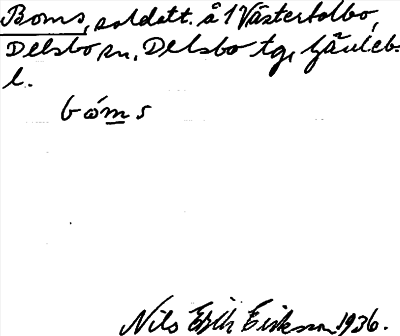 Boms, soldatt. å 1 Västerbolbo,
Delsbo sn, Delsbo tg, Gävleb.
l.
bóms
Nils Erik Eriksson 1936.